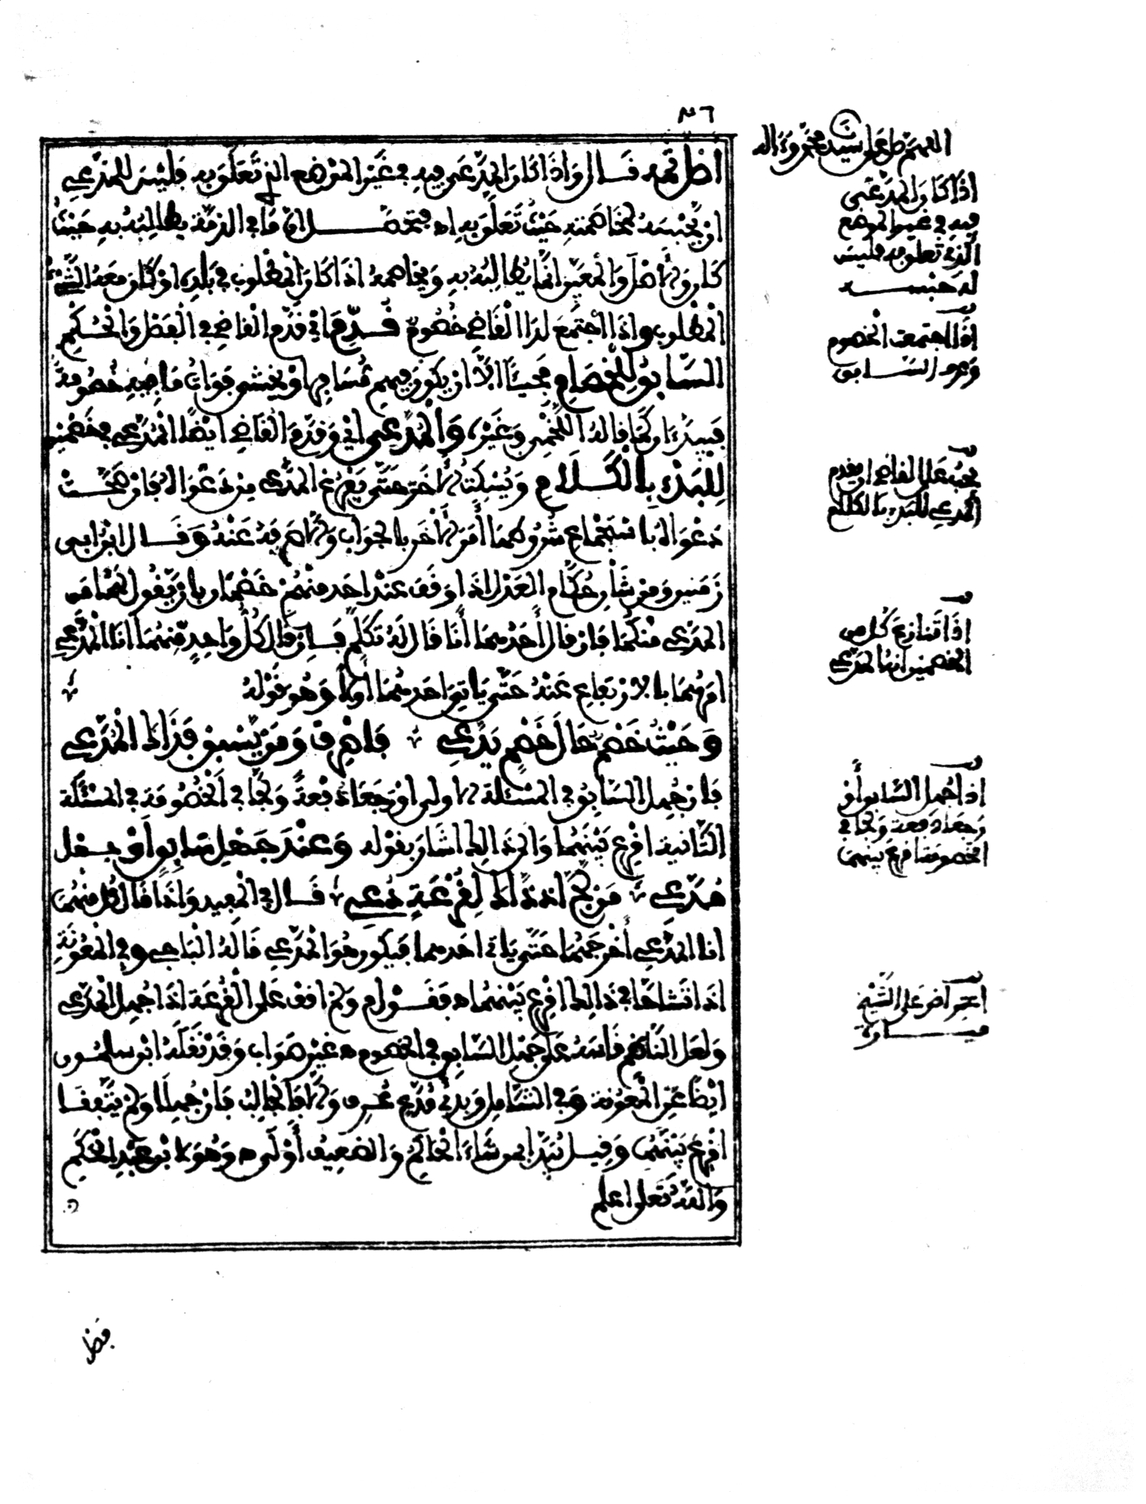 ٣٦
اللهم صل على سيدنا محمد وءاله
اصل ثمه قال واذا كان المدعى فيه في غير الموضع الذي تعلق به فليس للمدعي
ان يحبسه لمخاصمته حيث تعلق به اه فتحصل ان ما في الذمة يطالبه به حيث
كان والاصل والمعين انما يطالبه به ويخاصمه اذا كان المطلوب في بلده او كان معه الشيء
المطلوب واذا اجتمع لدا القاضي خصوم قدم اي قدم القاضي في الفصل والحكم
السابق للخصام مجيئا الا ان يكون فيهم مسافر او يخشى فوات ما فيه خصومة
فيبدءان كما قاله اللخمي وغيره والمدعي اي وقدم القاضي ايضا المدعي من خصمين
للبدء بالكلام ويسكت الاخر حتى يفرغ المدعي من دعواه فإن صحت
دعواه باستجماع شروطها أمر الاخر بالجواب والا صرفه عنه وقال ابن ابي
زمنين ومن شأن حكام العدل اذا وقف عند احد منهم خصمان بان يقول لهما من
المدعي منكما فان قال أحدهما أنا قال له تكلم فإن قال كل واحد منهما أنا المدعي
امرهما بالارتفاع عنه حتى ياتي احدهما اولا وهو قوله
وحيث خصم حال خصم يدعي فاصرف ومن يسبق فذاك المدعي
فان جهل السابق في المسئلة الاولى او رجعا دفعة ولجا في الخصومة في المسئلة
الثانية اقرع بينهما والى ذلك اشار بقوله وعند جهل سابق أو جهل
مدعي من لج اذ ذاك لقرعة دعي قال في المفيد واذا قال كل منهما
انا المدعي أخرجهما حتى ياتي احدهما فيكون هو المدعي قاله الباجي وفي المعونة
اذا تشاحا في ذلك اقرع بينهما ه فقول م ولم اقف على القرعة اذا جهل المدعي
ولعل الناظم قاسه على جهل السابق في الخصوم ه غير صواب وقد نقله ابن سلمون
ايضا عن المعونة وفي الشامل وبدئ مدع عرف والا فالجالب فان جهلا ولم يتفقا
اقرع بينهما وقيل يبدا بمن شاء الحاكم والضعيف أولى ه وهو لابن عبد الحكم
والله تعلى اعلم
اذا كان المدعى
فيه في غير الموضع
الذي تعلق به فليس
له حبسه
اذا اجتمعت الخصوم
وعرف السابق
يجب على القاضي ان يقدم
المدعي للبدء بالكلام
إذا تنازع كل من
الخصمين انه المدعي
إذا جهل السابق أو
رجعا دفعة ولجا في
الخصومة اقرع بينهما
اعتراض على الشيخ
ميارة
فصل